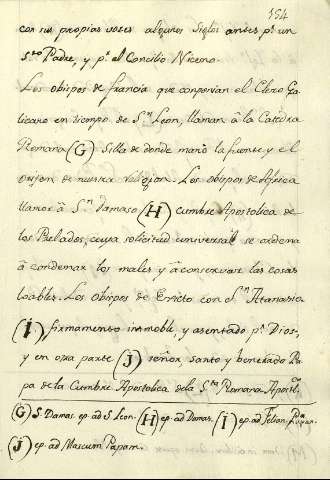 154
con sus propias voces algunos siglos antes pr un
sto Padre, y pr el Concilio Niceno.
Los obispos de francia que conpenian el Clero Ga-
licano en tiempo de Sn Leon, llaman â la Catedra
Romana (G) Silla de donde manò la fuente y el
origen de nuestra religion. Los obispos de Africa
llaman â Sn Damaso (H) cumbre Apostolica de
los Prelados, cuya solicitud universal se ordena
â condenar los males y â conservar las cosas
loables. Los obispos de Enicto con Sn Atanasio
(I) firmamento inmoble, y asentado pr Dios,
y en otra parte (J) señor santo y benerado Pa-
pa de la Cumbre Apostolica dela Sta Romana Apostca
(G) S. Damas. ep. ad S. Leon. (H) ep. ad Damas. (I) ep. ad Felicn. Pa
pam.
(J) ep. ad Marcum Papam.